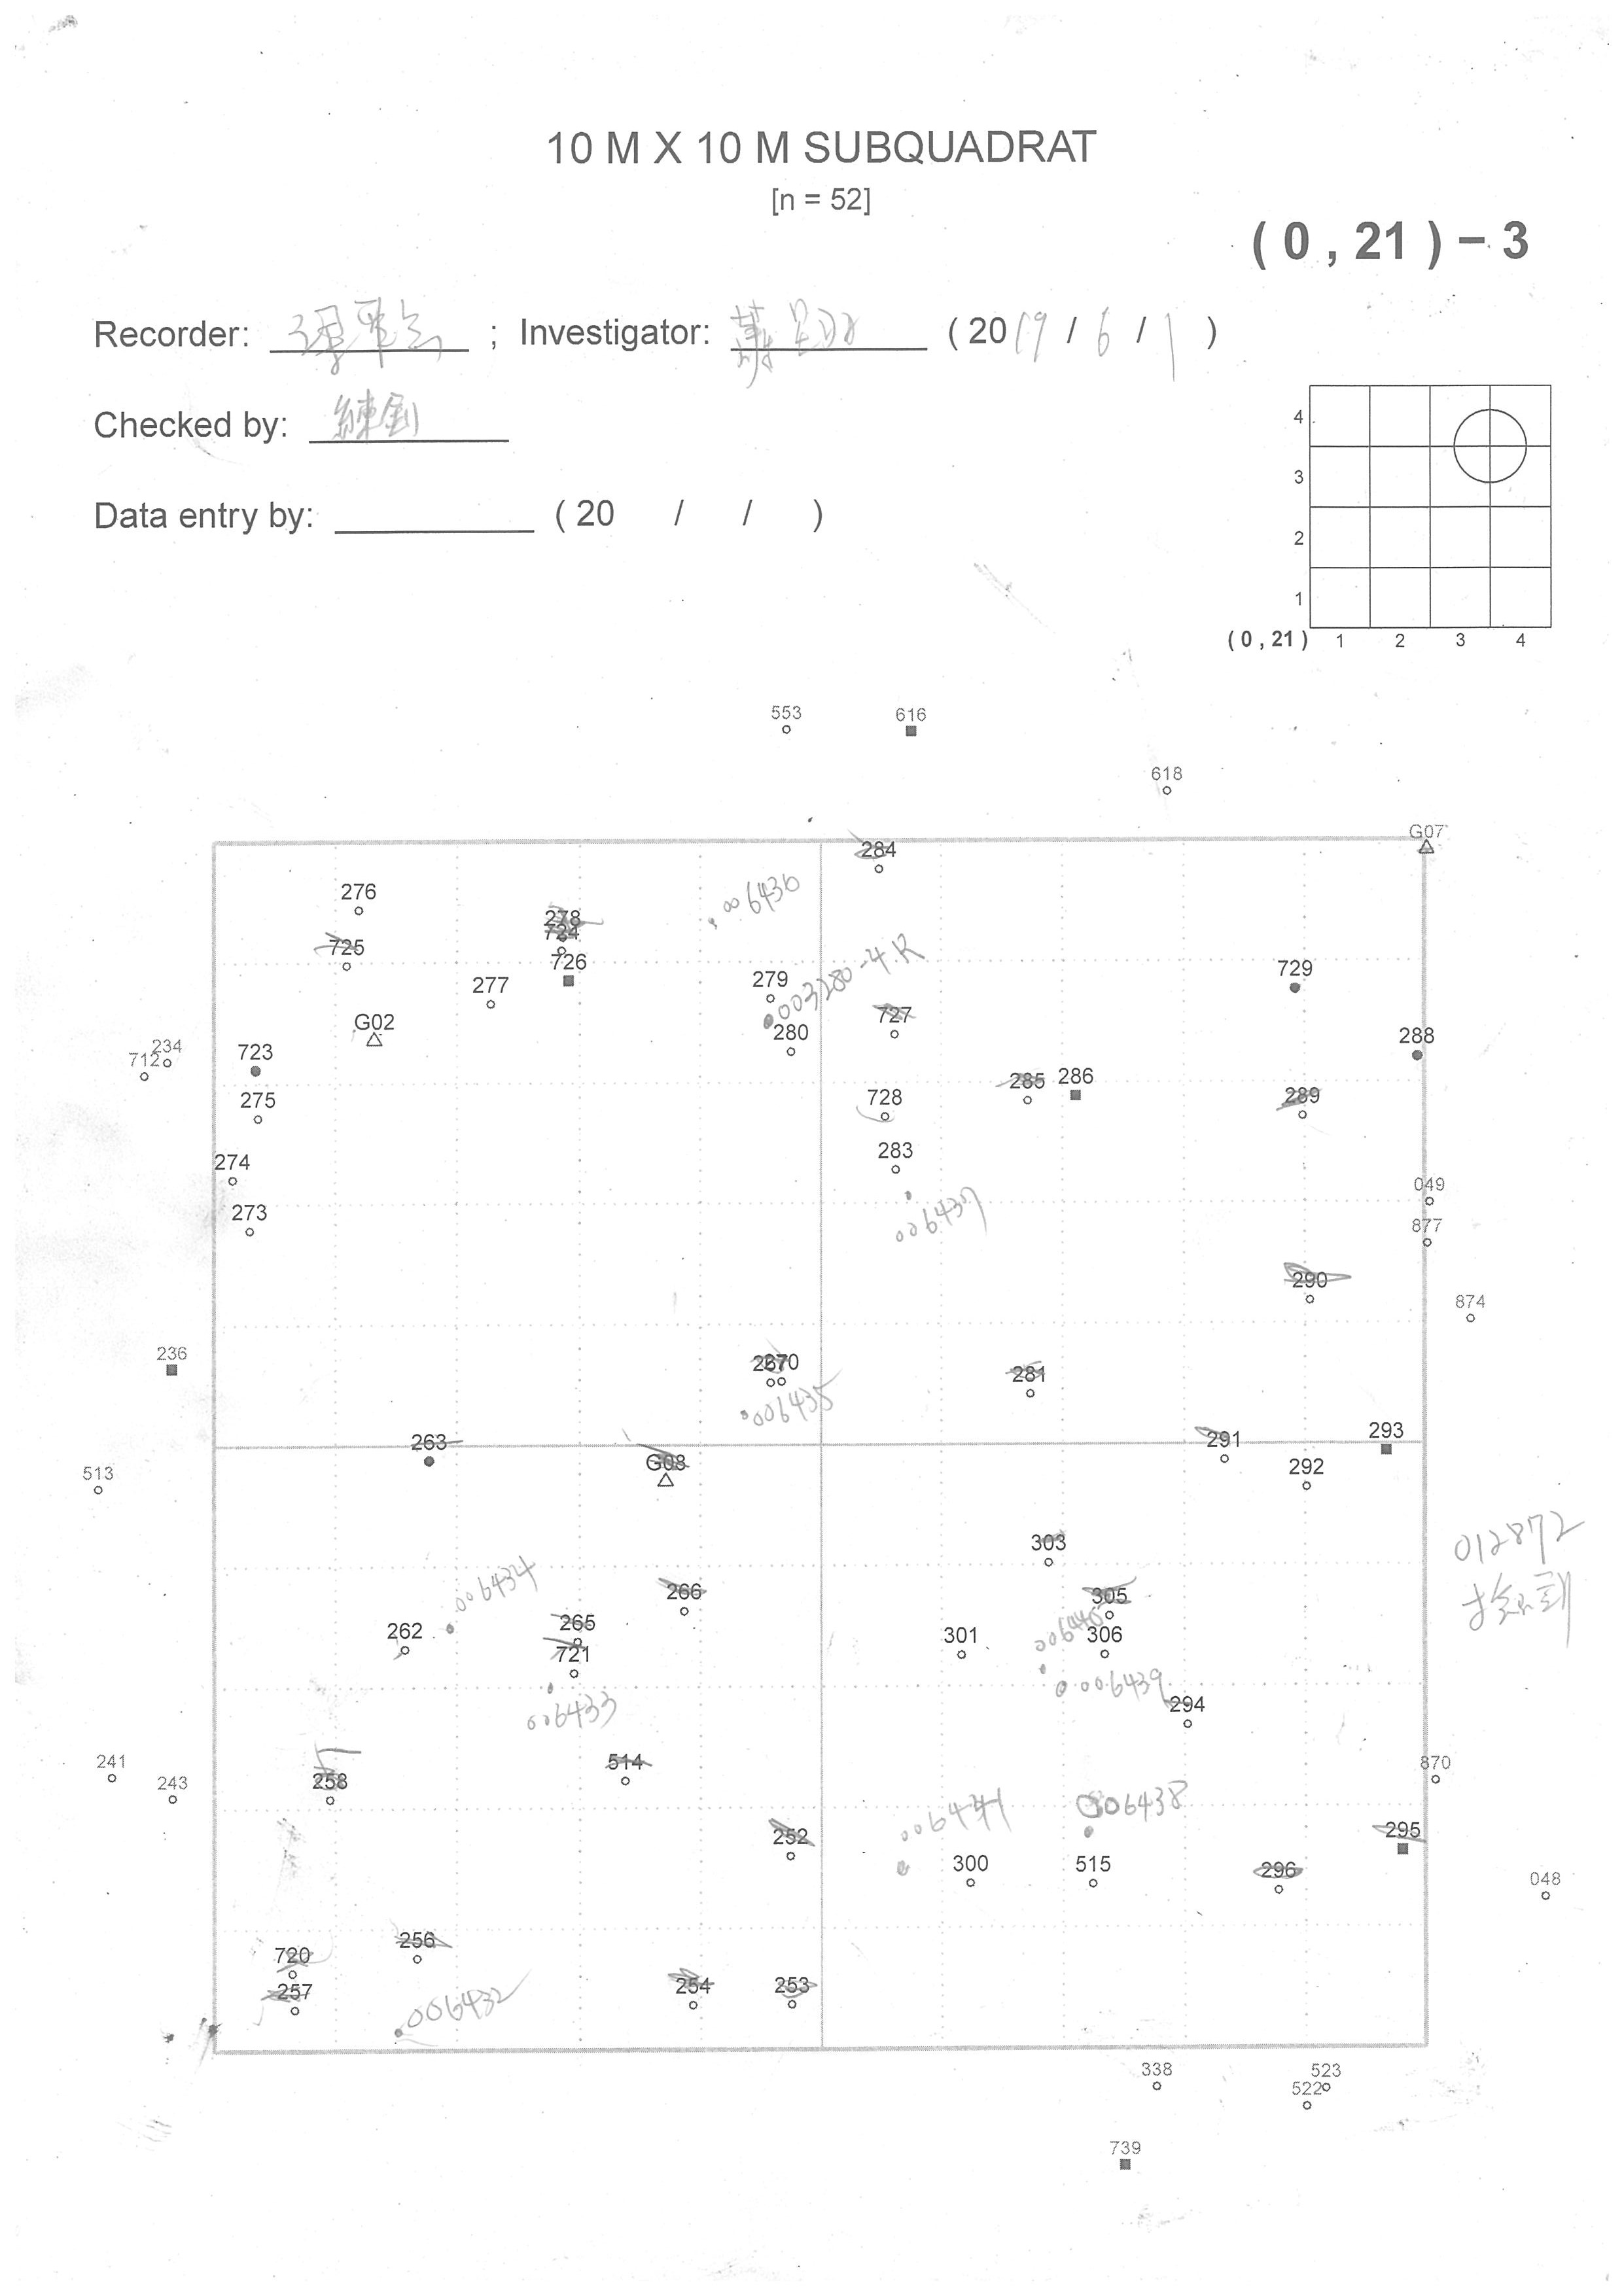 10 M X 10 M SUBQUADRAT
[n = 52]
( 0 , 21 ) - 3
Recorder: ; Investigator: ( 2019 / 6 / 1 )
Checked by:
Data entry by: ( 20 / / )
4
3
2
1
( 0 , 21 ) 1 2 3 4
553 616
618
G07
284
276 006436
278
724
725
726
277 279 003280-4.R 729
727
G02 280 288
234
712 723 285 286
275 728 289
283
274 049
273 006437 877
290
874
236 267 270 281
006435
263 291 293
G08 292
513
303 012872
006434 266 305
265 006440
262 301 306
721
006439 294
006433
514
241 258 870
243
006441 006438
252 295
300 515 296
048
256
720
257 254 253
006432
338 523
522
739